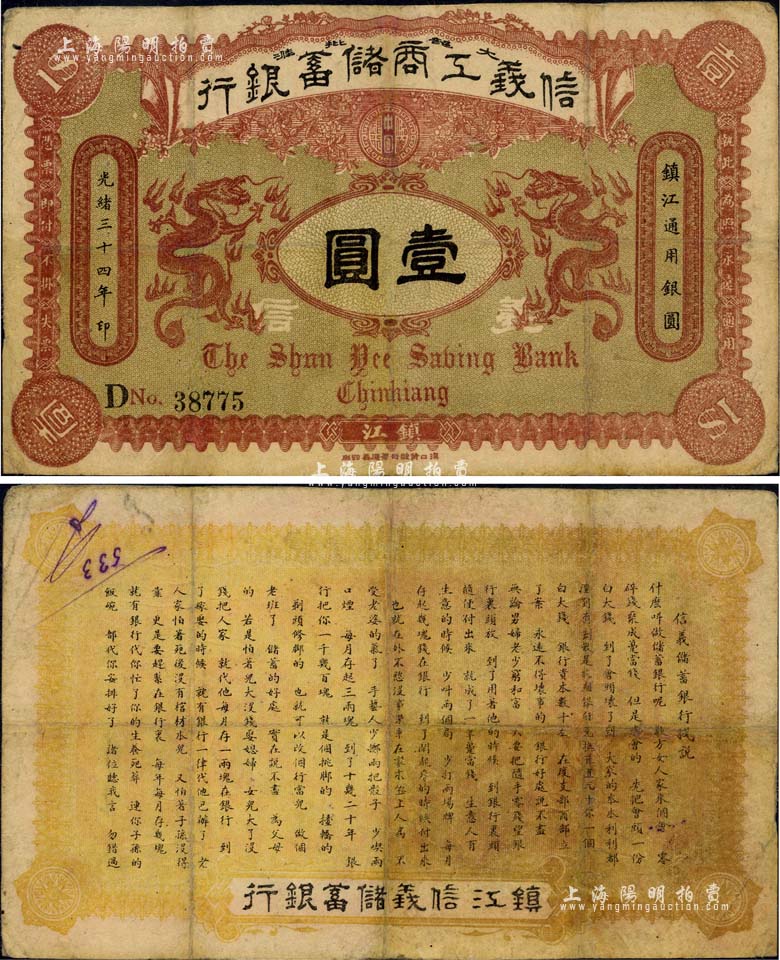 上海陽明拍賣
www.yangmingauction.com
大部批准
信義工商儲蓄銀行
1$
壹
憑票即付不掛失票
光緒三十四年印
鎮江通用銀圓
壹圓
信義
The Shun Yee Saving Bank
Chinkiang
DNo. 38775
壹
1$
鎮江
上海陽明拍賣
www.yangmingauction.com
533
信義儲蓄銀行淺說
什麼叫做儲蓄銀行呢
碎錢聚成整當錢 但是 會的 先把會頭一份
白大錢 到了會頭壞了 大家的本本利利都
白大錢 銀行資本數十 在度支部商部立
了案 永遠不停壞事的 銀行好處說不盡
無論男婦老少窮和富 要把隨手零錢望銀
行裏頭放 到了用著他的時候 到銀行裏頭
隨便付出來 就成了一筆整當錢 生意人有
生意的時候 少叫兩個局 少打兩場牌 每月
存起幾塊錢在銀行 到了閒 的時候付出來
也就在外不愁沒事 在家不愁上人 不
受老婆的氣了 手藝人少擲兩把骰子 少喫兩
口煙 每月存起三兩塊 到了十幾二十年 銀
行把你一千幾百塊 就是個挑脚的 擡轎的
剃頭修脚的 也就可以改個行當兒 做個
老班了 儲蓄的好處 實在說不盡 為父母
的 若是怕著兒大沒錢娶媳婦 女兒大了沒
錢把人家 就代他每月存一兩塊在銀行 到
了嫁娶的時候 就有銀行一律代他已辦了 老
人家怕著死後沒有棺材本兒 又怕著子孫沒得
靠 更是要趕緊在銀行裏 每年每月存幾塊
就有銀行代你忙了你的生養死葬 連你子孫的
飯碗 都代你安排好了 諸位聽我言 勿錯過
鎮江信義儲蓄銀行
上海陽明拍賣
www.yangmingauction.com